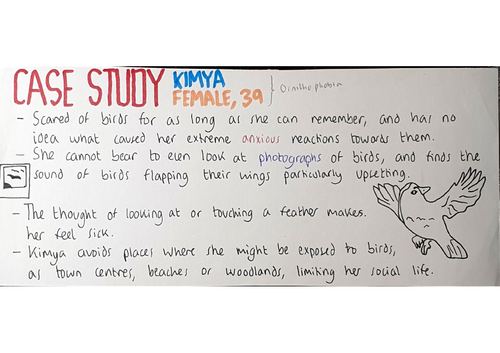 CASE STUDY KIMYA
FEMALE, 39
Ornithophobia
- Scared of birds for as long as she can remember, and has no
idea what caused her extreme anxious reactions towards them.
- She cannot bear to even look at photographs of birds, and finds the
sound of birds flapping their wings particularly upsetting.
- The thought of looking at or touching a feather makes
her feel sick.
- Kimya avoids places where she might be exposed to birds,
as town centres, beaches or woodlands, limiting her social life.